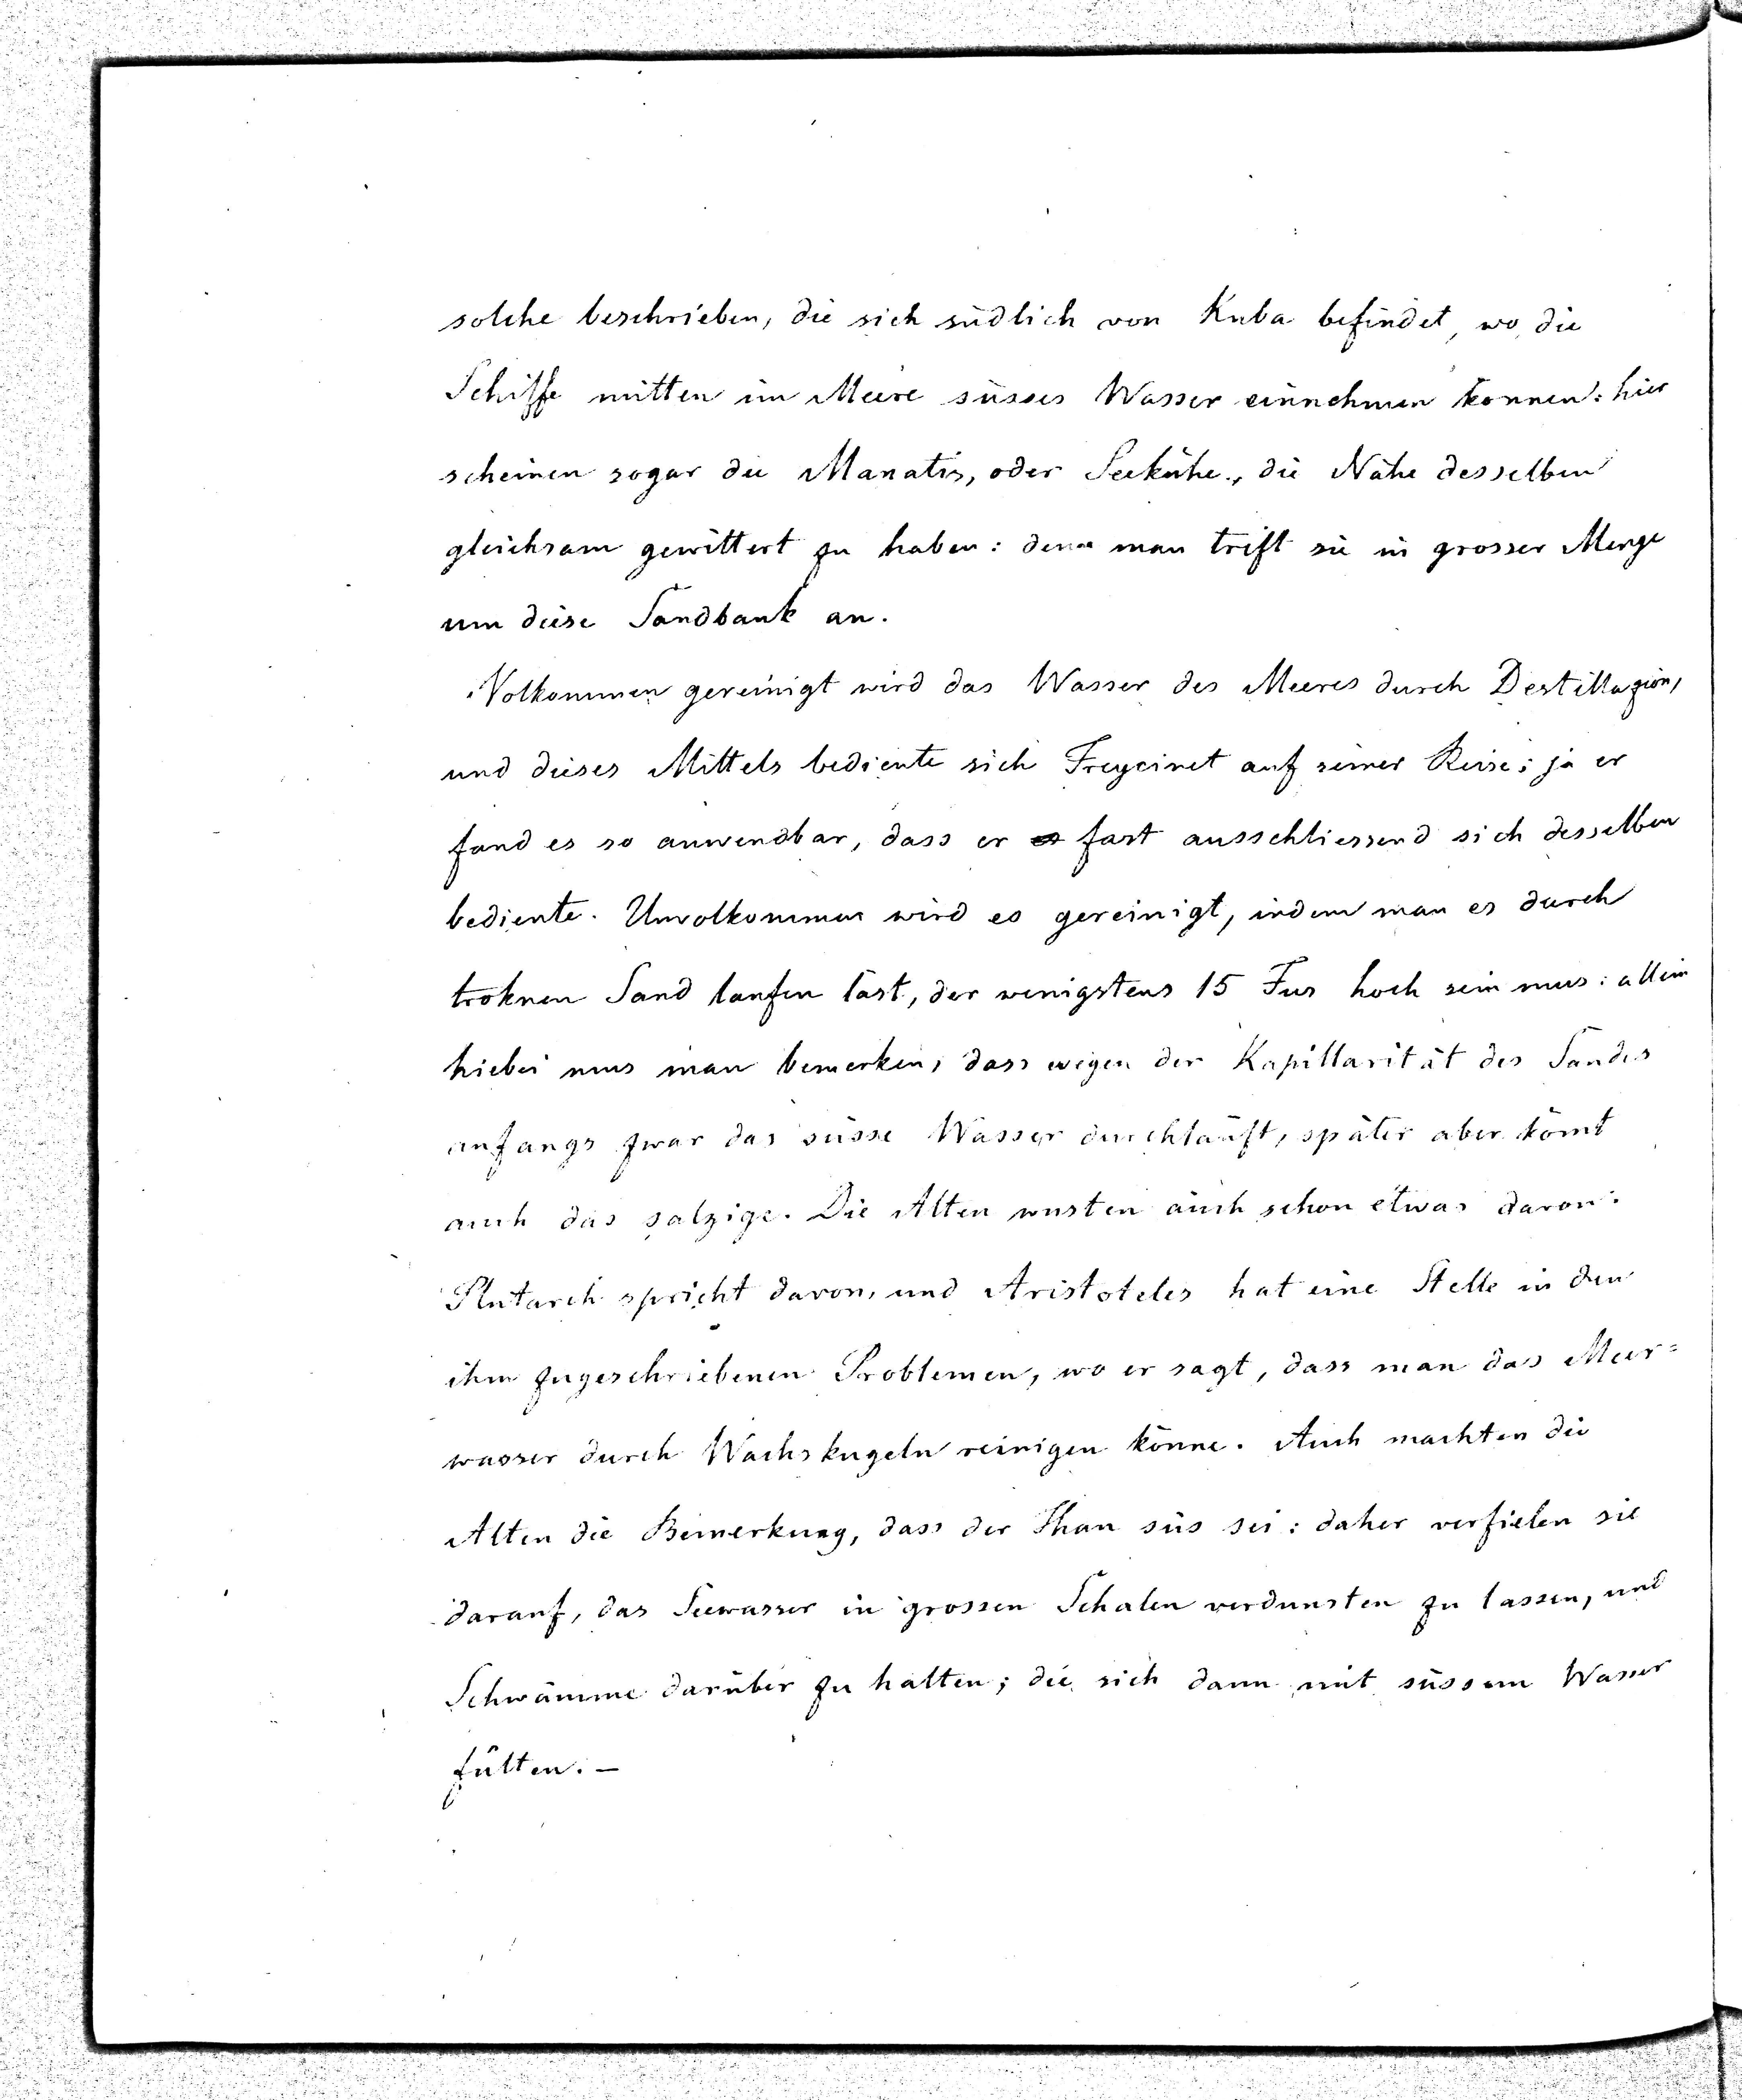 solche beschrieben, die sich südlich von Kuba befindet, wo die
Schiffe mitten im Meere süsses Wasser einnehmen können: hier
scheinen sogar die Manatis, oder Seekühe, die Nähe desselben
gleichsam gewittert zu haben: denn man trift sie in grosser Menge
um diese Sandbank an.
Volkommen gereinigt wird das Wasser des Meeres durch Destillazion,
und dieses Mittels bediente sich Freycinet auf seiner Reise; ja er
fand es so anwendbar, dass er es fast ausschliessend sich desselben
bediente. Unvolkommen wird es gereinigt, indem man es durch
troknen Sand laufen läst, der wenigstens 15 Fus hoch sein mus: allein
hiebei mus man bemerken, dass wegen der Kapillarität des Sandes
anfangs zwar das süsse Wasser durchläuft, später aber kömt
auch das salzige. Die Alten wusten auch schon etwas davon.
Plutarch spricht davon, und Aristoteles hat eine Stelle in den
ihm zugeschriebenen Problemen, wo er sagt, dass man das Meer=
wasser durch Wachskugeln reinigen könne. Auch machten die
Alten die Bemerkung, dass der Thau süs sei: daher verfielen sie
darauf, das Seewasser in grossen Schalen verdunsten zu lassen, und
Schwämme darüber zu halten; die sich dann mit süssem Wasser
fülten. –